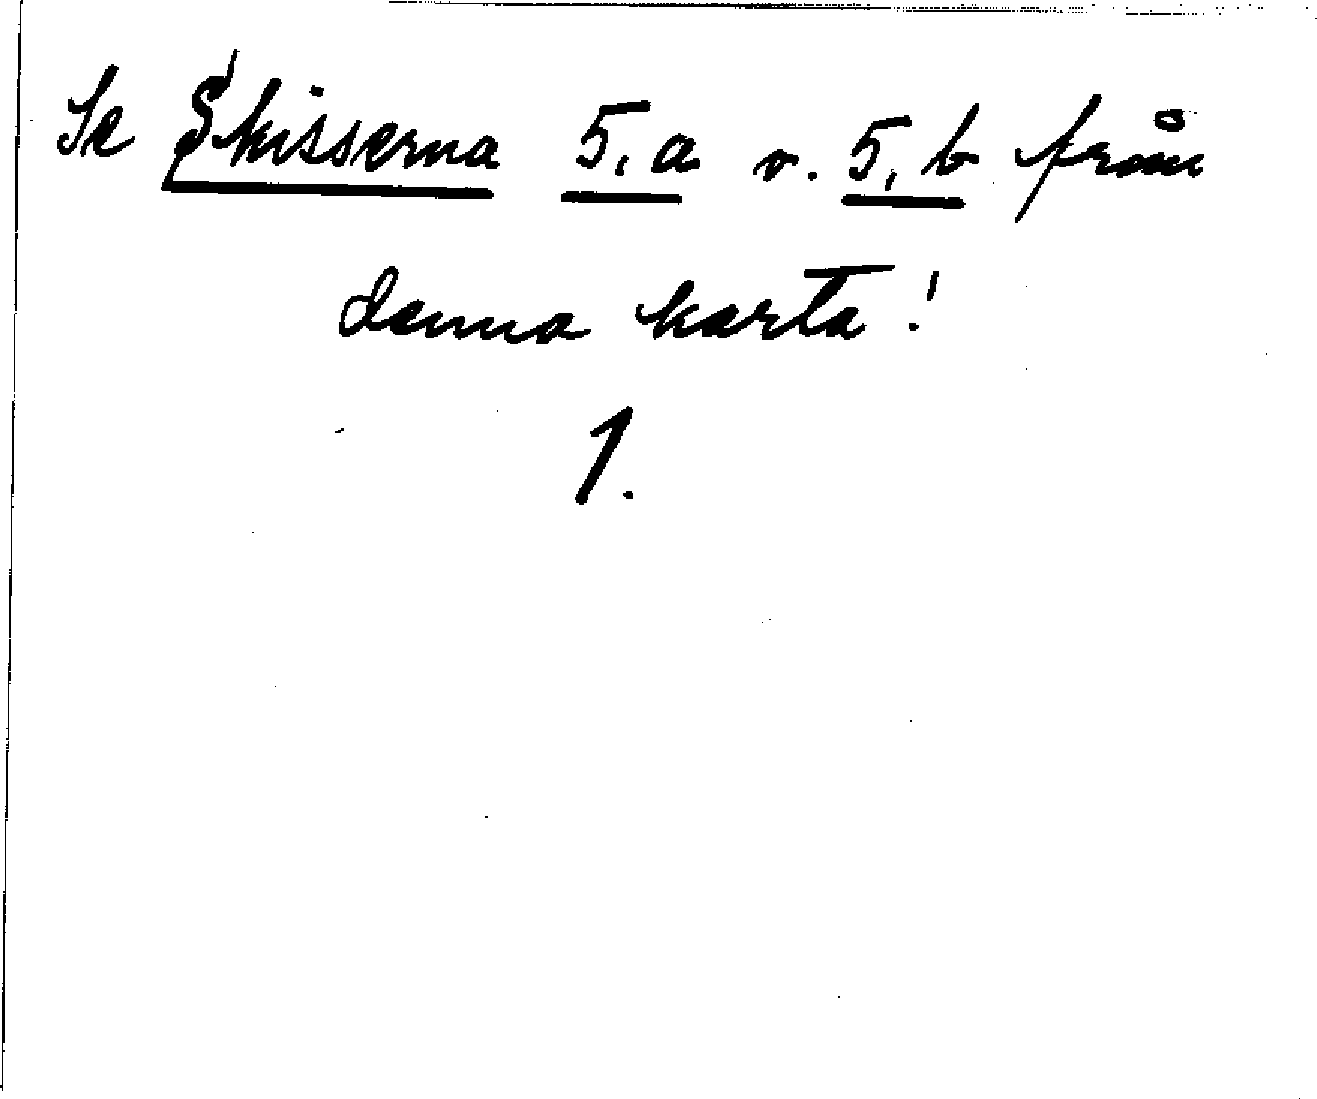 Se Skisserna 5, a o. 5, b från
denna karta!
1.